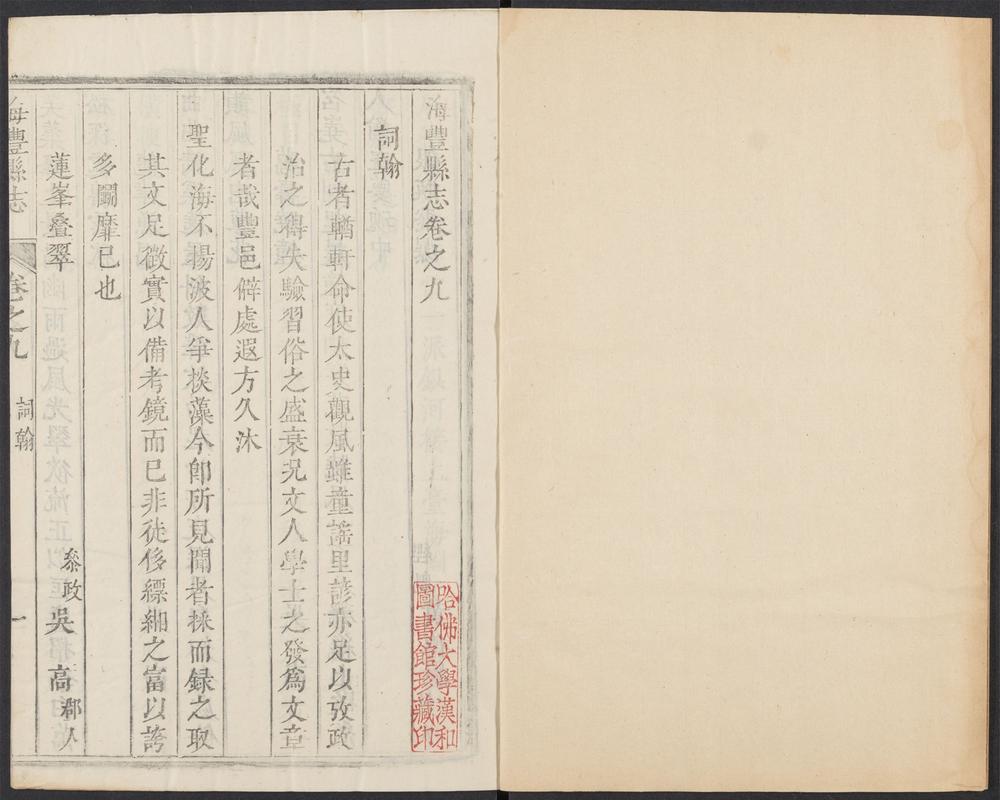 海豐縣志卷之九
詞翰
古者輶軒命使太史觀風雖童謠里諺亦足以攷政
治之得失驗習俗之盛衰況文人學士之發爲文章
者哉豐邑僻處遐方久沐
聖化海不揚波人爭掞藻今卽所見聞者採而録之取
其文足徵實以備考鏡而已非徒侈縹緗之富以誇
多鬭靡已也
蓮峯叠翠 叅政吳高郡人
海豐縣志 卷之九 詞翰 一
哈佛大學漢和
圖書館珍藏印